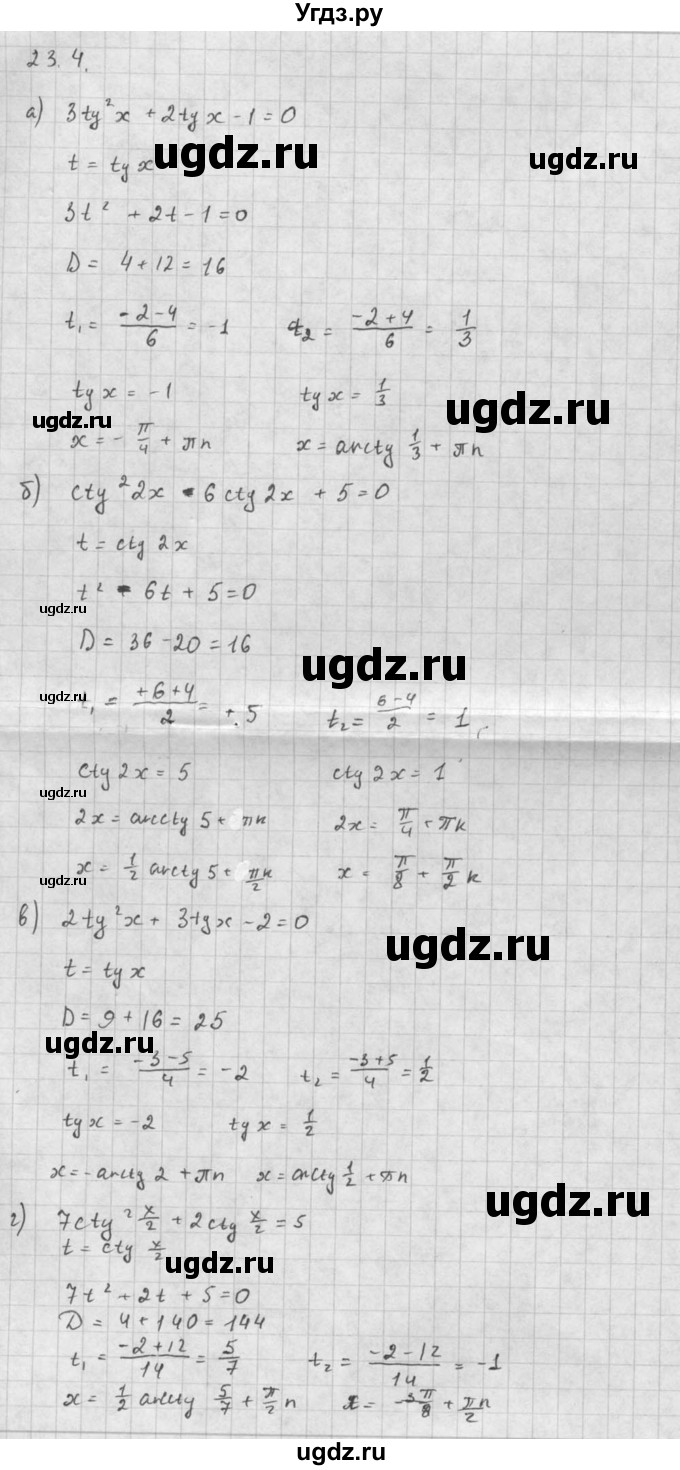 Угдз.ру
23.4.
а) 3tg²x + 2tgx - 1 = 0
t = tgx
ugdz.ru ugdz.ru
3t² + 2t - 1 = 0
D = 4 + 12 = 16
t₁ = (-2-4)/6 = -1 t₂ = (-2+4)/6 = 1/3
tgx = -1 tgx = 1/3
ugdz.ru ugdz.ru
x = -π/4 + πn x = arctg 1/3 + πn
б) ctg²2x - 6ctg2x + 5 = 0
t = ctg2x
t² - 6t + 5 = 0
ugdz.ru
D = 36 - 20 = 16
ugdz.ru
t₁ = (+6+4)/2 = +5 t₂ = (6-4)/2 = 1
ugdz.ru
ctg2x = 5 ctg2x = 1
ugdz.ru
2x = arcctg5 + πk 2x = π/4 + πk
x = 1/2 arctg5 + πk/2 x = π/8 + π/2 k
ugdz.ru
в) 2tg²x + 3tgx - 2 = 0
ugdz.ru
t = tgx
D = 9 + 16 = 25
ugdz.ru
t₁ = (-3-5)/4 = -2 t₂ = (-3+5)/4 = 1/2
tgx = -2 tgx = 1/2
x = -arctg2 + πn x = arctg 1/2 + πn
ugdz.ru
г) 7ctg² x/2 + 2ctg x/2 = 5
t = ctg x/2
ugdz.ru
7t² + 2t + 5 = 0
D = 4 + 140 = 144
t₁ = (-2+12)/14 = 5/7 t₂ = (-2-12)/14 = -1
x = 1/2 arctg 5/7 + π/2 n x = -3π/8 + πn/2
ugdz.ru